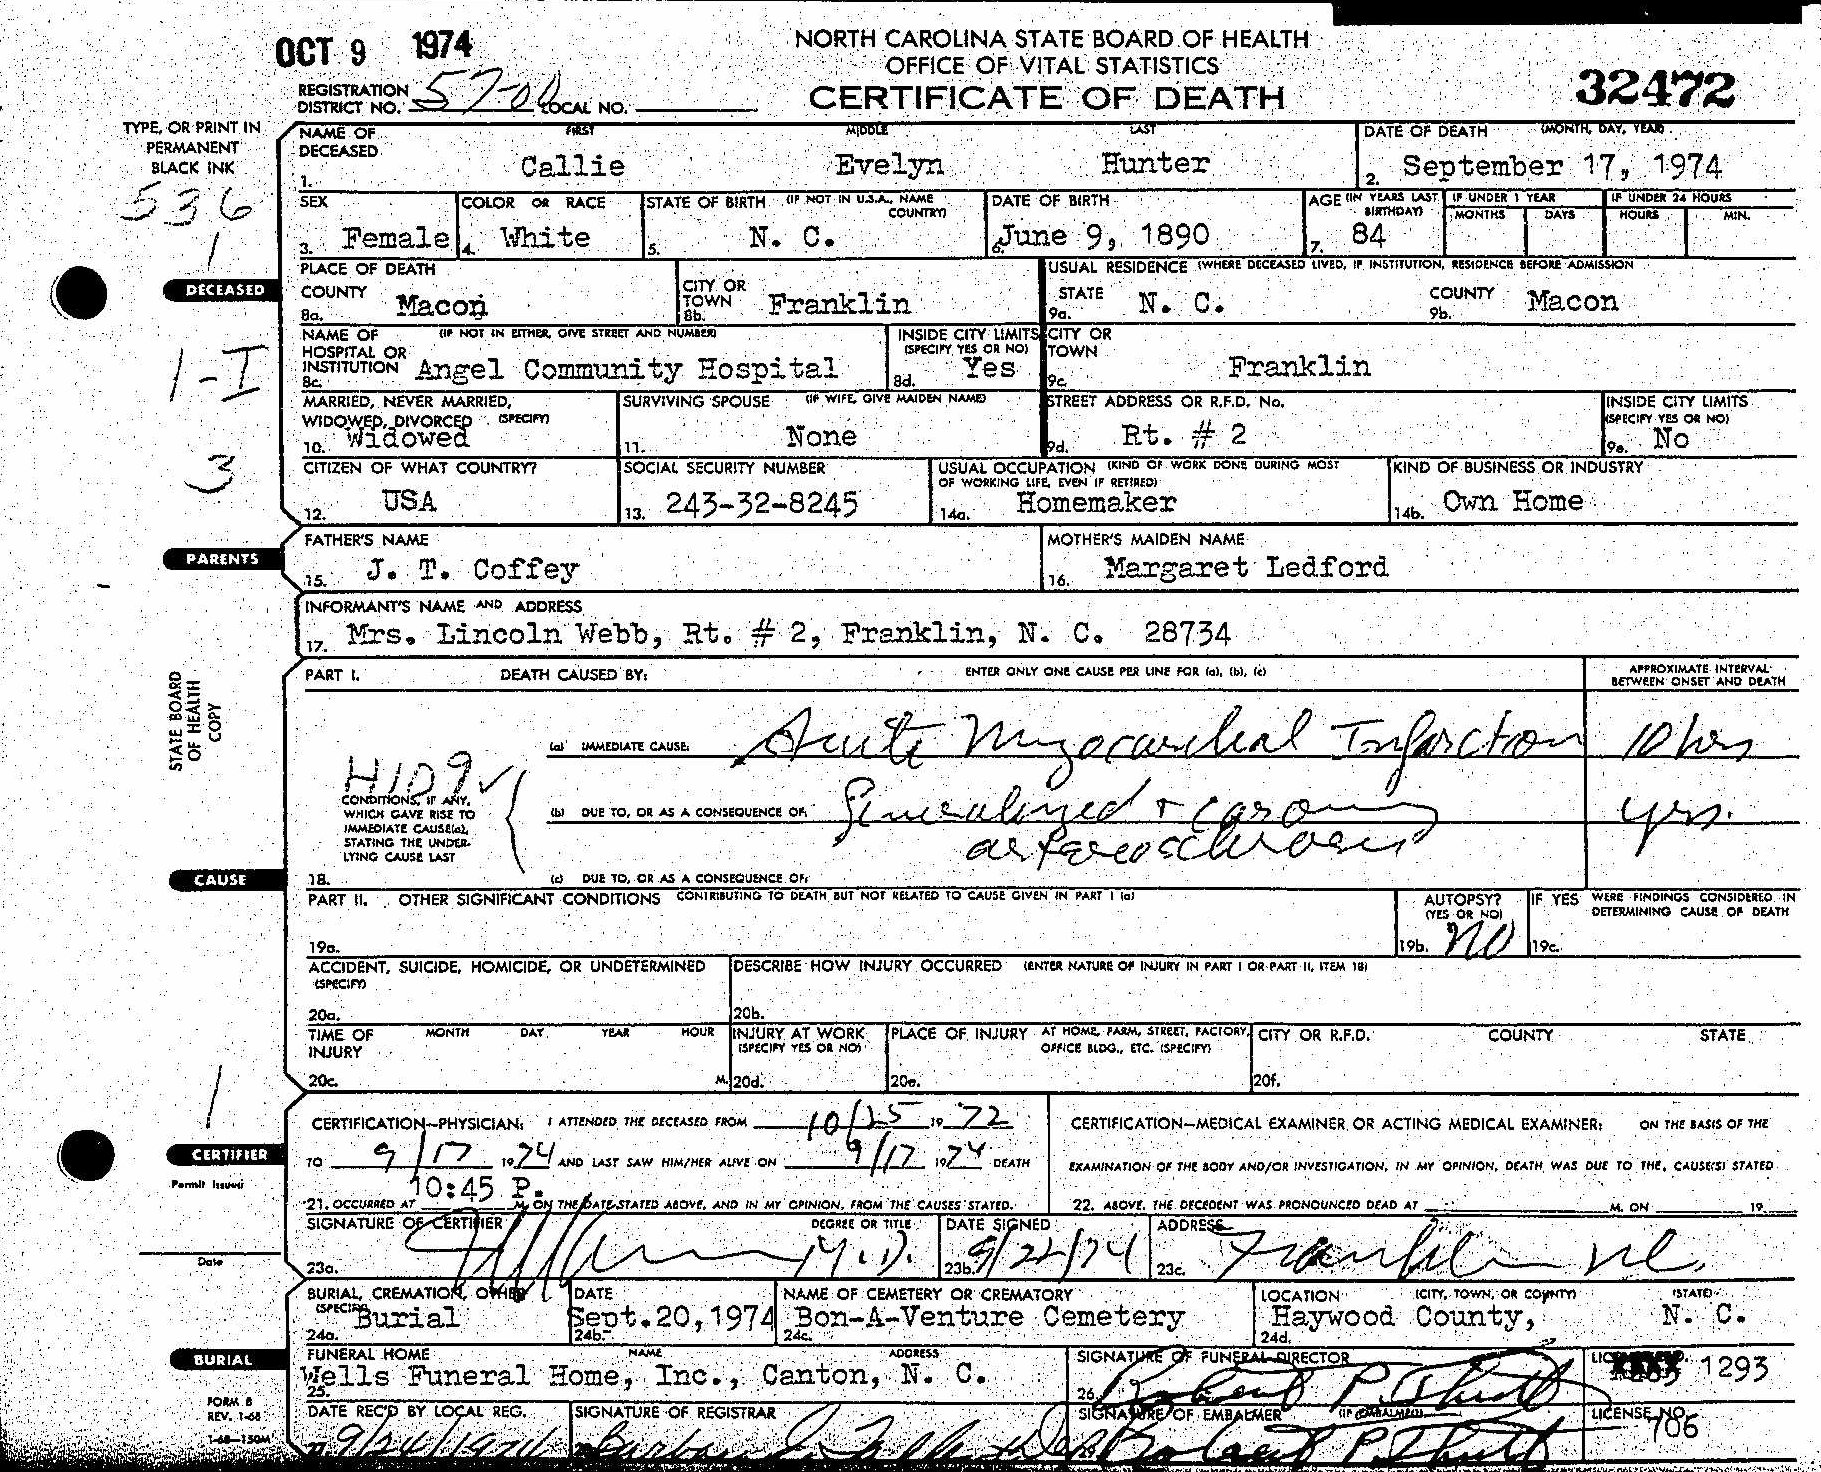 OCT 9 1974
NORTH CAROLINA STATE BOARD OF HEALTH
OFFICE OF VITAL STATISTICS
CERTIFICATE OF DEATH
32472
REGISTRATION DISTRICT NO. 57-00 LOCAL NO.
TYPE, OR PRINT IN
PERMANENT
BLACK INK
536
1
DECEASED
1-I
3
NAME OF DECEASED FIRST MIDDLE LAST
1. Callie Evelyn Hunter
DATE OF DEATH (MONTH, DAY, YEAR)
2. September 17, 1974
SEX
3. Female
COLOR OR RACE
4. White
STATE OF BIRTH (IF NOT IN U.S.A., NAME COUNTRY)
5. N. C.
DATE OF BIRTH
6. June 9, 1890
AGE (IN YEARS LAST BIRTHDAY)
7. 84
IF UNDER 1 YEAR
MONTHS DAYS
IF UNDER 24 HOURS
HOURS MIN.
PLACE OF DEATH
COUNTY
8a. Macon
CITY OR TOWN
8b. Franklin
USUAL RESIDENCE (WHERE DECEASED LIVED, IF INSTITUTION, RESIDENCE BEFORE ADMISSION
STATE
9a. N. C.
COUNTY
9b. Macon
NAME OF HOSPITAL OR INSTITUTION (IF NOT IN EITHER, GIVE STREET AND NUMBER)
8c. Angel Community Hospital
INSIDE CITY LIMITS (SPECIFY YES OR NO)
8d. Yes
CITY OR TOWN
9c. Franklin
MARRIED, NEVER MARRIED, WIDOWED, DIVORCED (SPECIFY)
10. Widowed
SURVIVING SPOUSE (IF WIFE, GIVE MAIDEN NAME)
11. None
STREET ADDRESS OR R.F.D. No.
9d. Rt. # 2
INSIDE CITY LIMITS (SPECIFY YES OR NO)
9e. No
CITIZEN OF WHAT COUNTRY?
12. USA
SOCIAL SECURITY NUMBER
13. 243-32-8245
USUAL OCCUPATION (KIND OF WORK DONE DURING MOST OF WORKING LIFE, EVEN IF RETIRED)
14a. Homemaker
KIND OF BUSINESS OR INDUSTRY
14b. Own Home
PARENTS
FATHER'S NAME
15. J. T. Coffey
MOTHER'S MAIDEN NAME
16. Margaret Ledford
INFORMANT'S NAME AND ADDRESS
17. Mrs. Lincoln Webb, Rt. # 2, Franklin, N. C. 28734
STATE BOARD
OF HEALTH
COPY
PART I. DEATH CAUSED BY: ENTER ONLY ONE CAUSE PER LINE FOR (a), (b), (c)
APPROXIMATE INTERVAL BETWEEN ONSET AND DEATH
(a) IMMEDIATE CAUSE: Acute Myocardial Infarction 10 hrs
H109
CONDITIONS, IF ANY,
WHICH GAVE RISE TO
IMMEDIATE CAUSE(a),
STATING THE UNDER-
LYING CAUSE LAST
(b) DUE TO, OR AS A CONSEQUENCE OF: Generalized + coronary yrs.
arteriosclerosis
CAUSE
18. (c) DUE TO, OR AS A CONSEQUENCE OF:
PART II. OTHER SIGNIFICANT CONDITIONS CONTRIBUTING TO DEATH BUT NOT RELATED TO CAUSE GIVEN IN PART I (a)
19a.
AUTOPSY? (YES OR NO)
19b. NO
IF YES WERE FINDINGS CONSIDERED IN DETERMINING CAUSE OF DEATH
19c.
ACCIDENT, SUICIDE, HOMICIDE, OR UNDETERMINED (SPECIFY)
20a.
DESCRIBE HOW INJURY OCCURRED (ENTER NATURE OF INJURY IN PART I OR PART II, ITEM 18)
20b.
TIME OF INJURY MONTH DAY YEAR HOUR
20c. M.
INJURY AT WORK (SPECIFY YES OR NO)
20d.
PLACE OF INJURY AT HOME, FARM, STREET, FACTORY, OFFICE BLDG., ETC. (SPECIFY)
20e.
CITY OR R.F.D. COUNTY STATE
20f.
1
CERTIFIER
Permit Issued
Date
CERTIFICATION—PHYSICIAN: I ATTENDED THE DECEASED FROM 10/25 19 72
TO 9/17 1974 AND LAST SAW HIM/HER ALIVE ON 9/17 1974 DEATH
21. OCCURRED AT 10:45 P. M. ON THE DATE STATED ABOVE, AND IN MY OPINION, FROM THE CAUSES STATED.
CERTIFICATION—MEDICAL EXAMINER OR ACTING MEDICAL EXAMINER: ON THE BASIS OF THE
EXAMINATION OF THE BODY AND/OR INVESTIGATION, IN MY OPINION, DEATH WAS DUE TO THE CAUSE(S) STATED
22. ABOVE. THE DECEDENT WAS PRONOUNCED DEAD AT M. ON 19
SIGNATURE OF CERTIFIER DEGREE OR TITLE
23a. M.D.
DATE SIGNED
23b. 9/22/74
ADDRESS
23c. Franklin NC.
BURIAL, CREMATION, OTHER (SPECIFY)
24a. Burial
DATE
24b. Sept.20,1974
NAME OF CEMETERY OR CREMATORY
24c. Bon-A-Venture Cemetery
LOCATION (CITY, TOWN, OR COUNTY) (STATE)
24d. Haywood County, N. C.
BURIAL
FUNERAL HOME NAME ADDRESS
25. Wells Funeral Home, Inc., Canton, N. C.
SIGNATURE OF FUNERAL DIRECTOR
26. Robert P. Shutt
1293
FORM 8
REV. 1-68
1-68-150M
DATE REC'D BY LOCAL REG.
9/24/1974
SIGNATURE OF REGISTRAR
SIGNATURE OF EMBALMER (IF EMBALMED)
Robert P. Shutt
LICENSE NO.
706